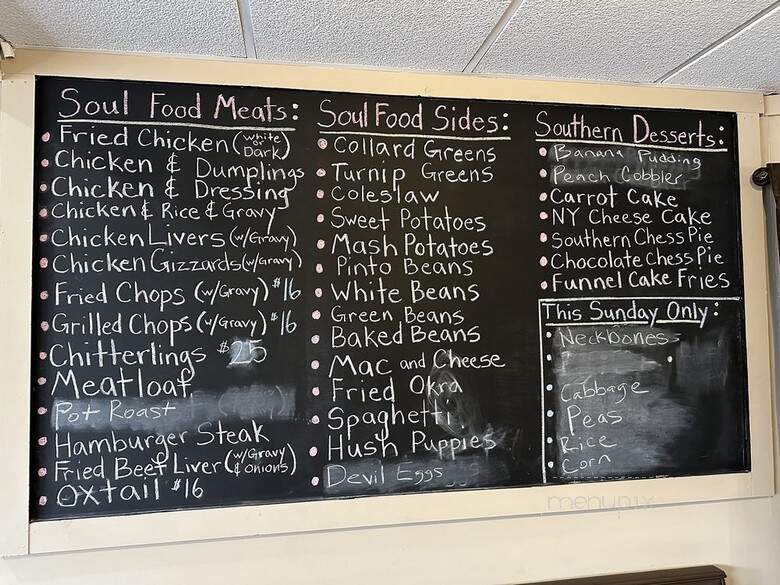 Soul Food Meats:
Fried Chicken (white or Dark)
Chicken & Dumplings
Chicken & Dressing
Chicken & Rice & Gravy
Chicken Livers (w/Gravy)
Chicken Gizzards (w/Gravy)
Fried Chops (w/Gravy) $16
Grilled Chops (w/Gravy) $16
Chitterlings $25
Meatloaf
Pot Roast
Hamburger Steak
Fried Beef Liver (w/Gravy & onions)
Oxtail $16
Soul Food Sides:
Collard Greens
Turnip Greens
Coleslaw
Sweet Potatoes
Mash Potatoes
Pinto Beans
White Beans
Green Beans
Baked Beans
Mac and Cheese
Fried Okra
Spaghetti
Hush Puppies
Devil Eggs
Southern Desserts:
Banana Pudding
Peach Cobbler
Carrot Cake
NY Cheese Cake
Southern Chess Pie
Chocolate Chess Pie
Funnel Cake Fries
This Sunday Only:
Neckbones
Cabbage
Peas
Rice
Corn
menupix